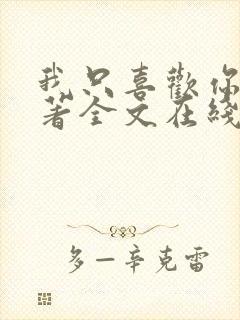 我只喜歡你
著全文在綫
多一辛克雷